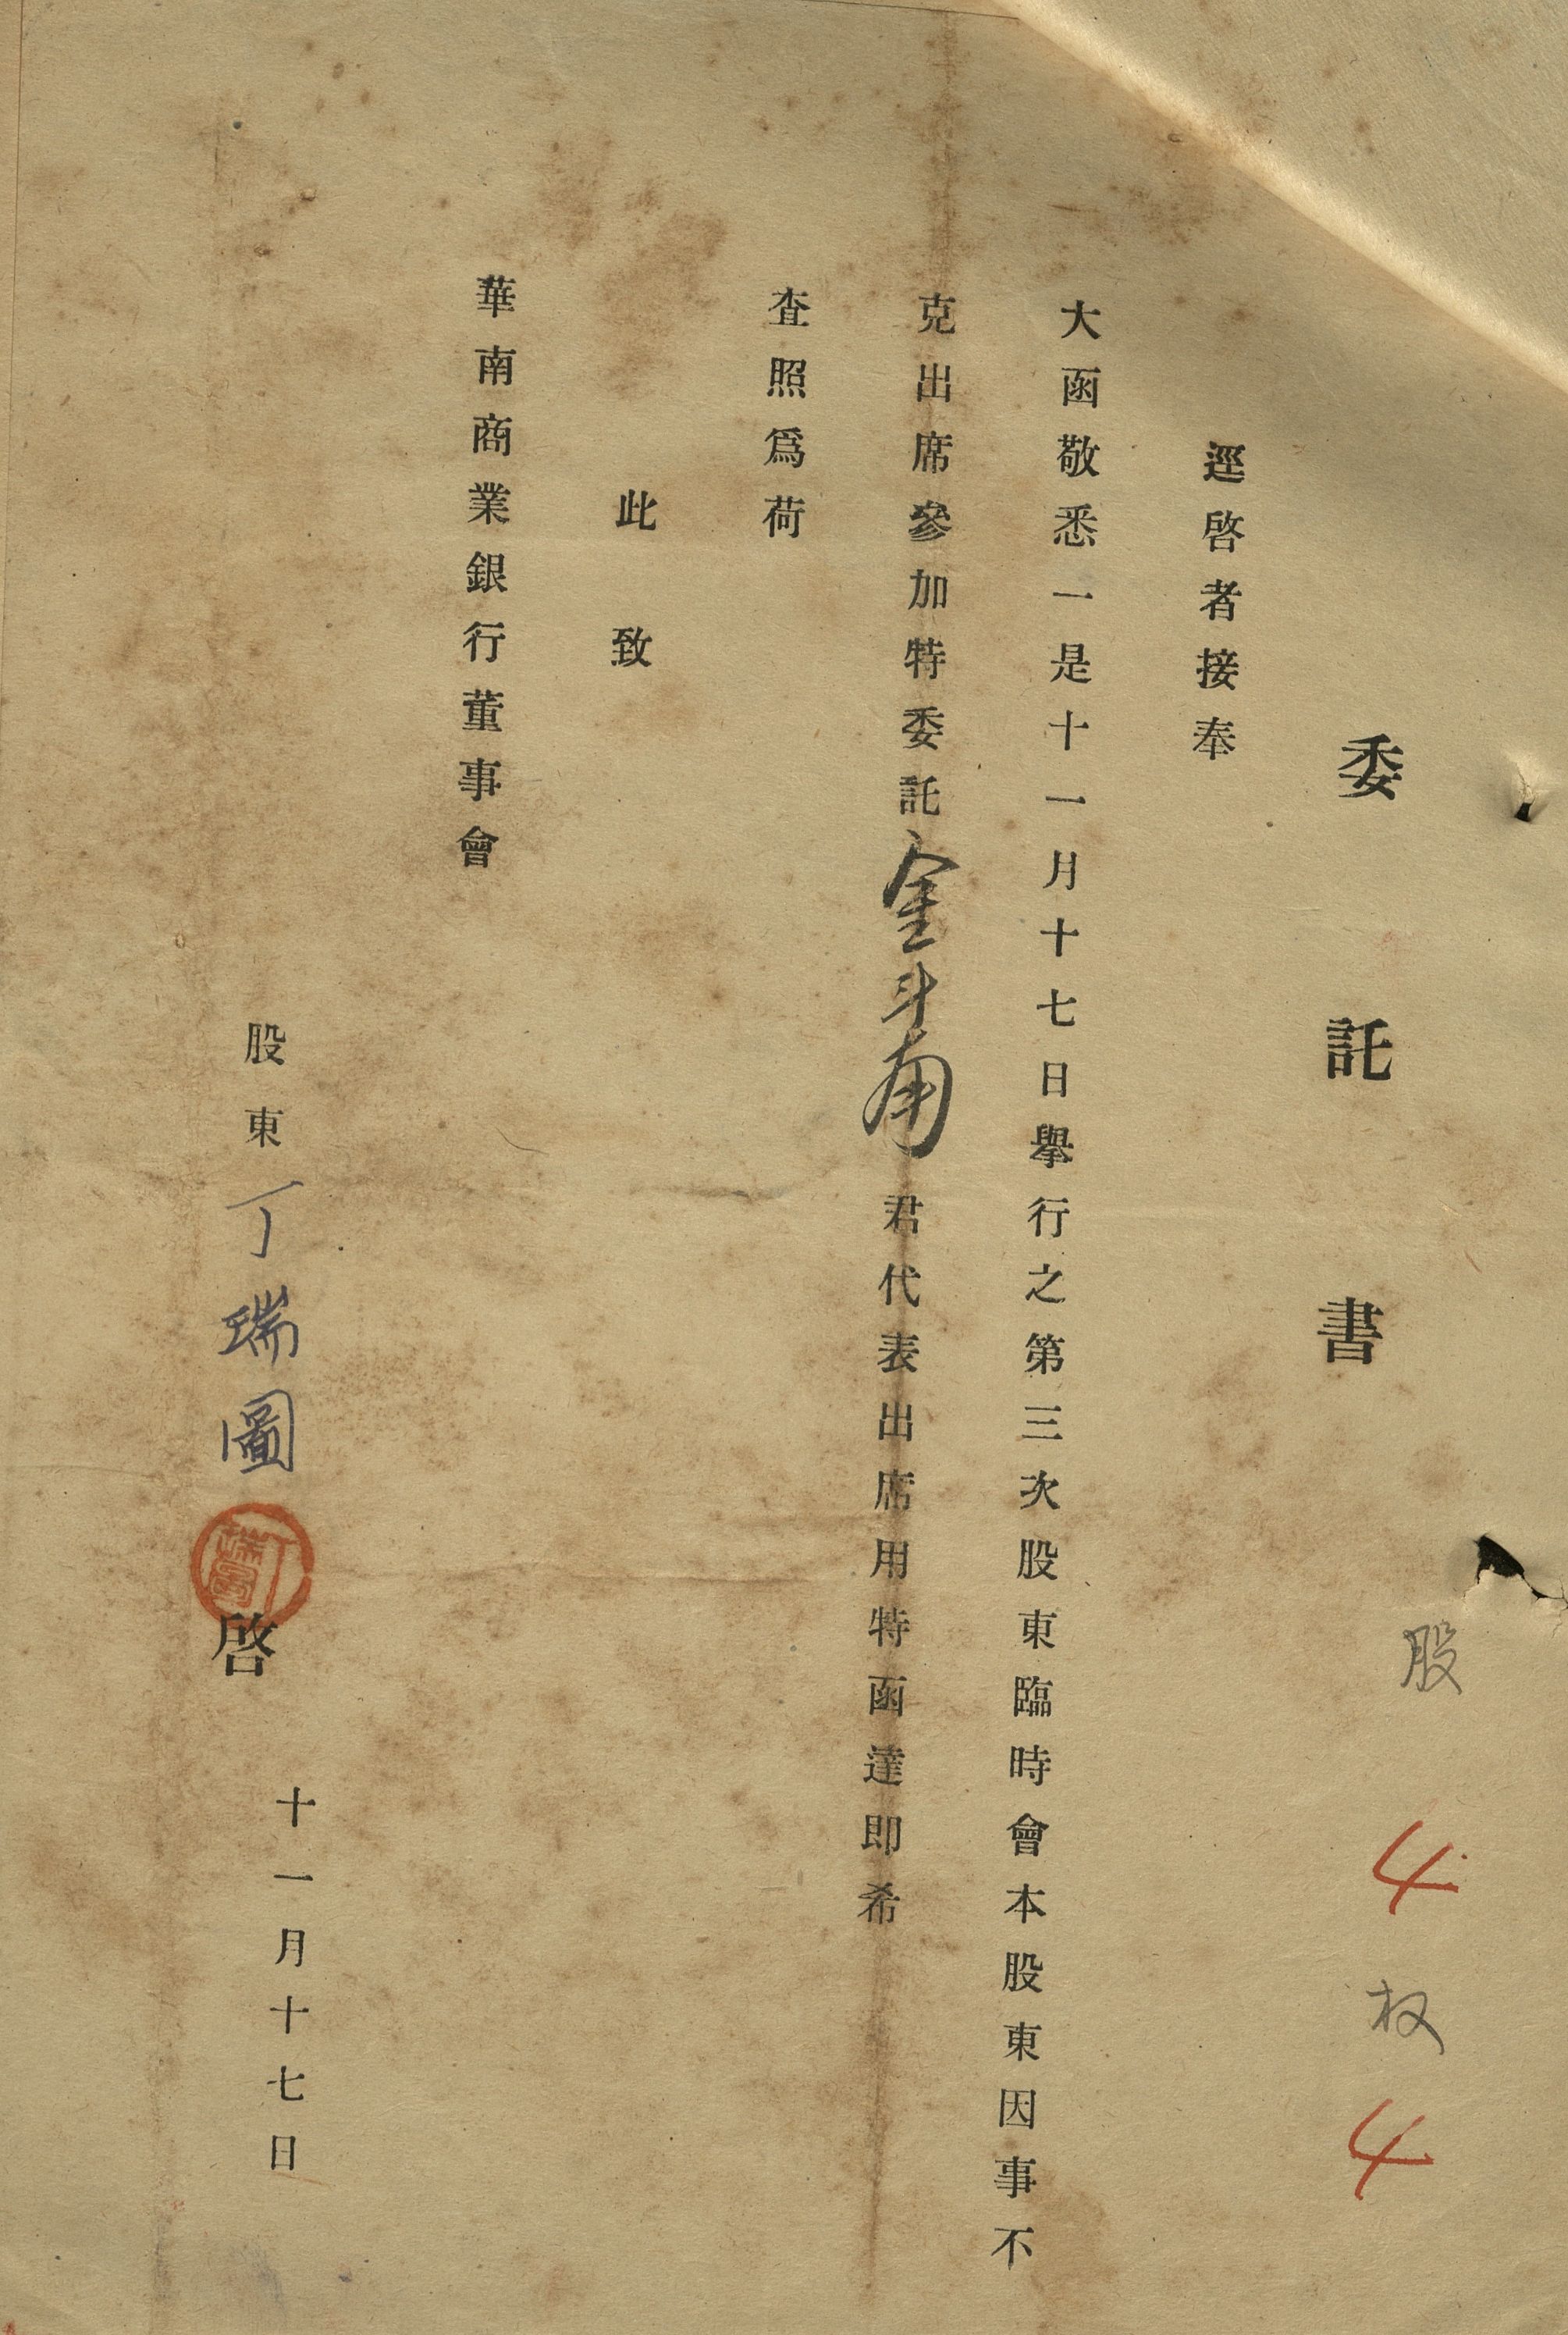 委託書
股 4 权 4
逕啓者接奉
大函敬悉一是十一月十七日擧行之第三次股東臨時會本股東因事不
克出席參加特委託金斗南君代表出席用特函達即希
查照爲荷
此致
華南商業銀行董事會
股東丁瑞圖啓
丁瑞圖
十一月十七日